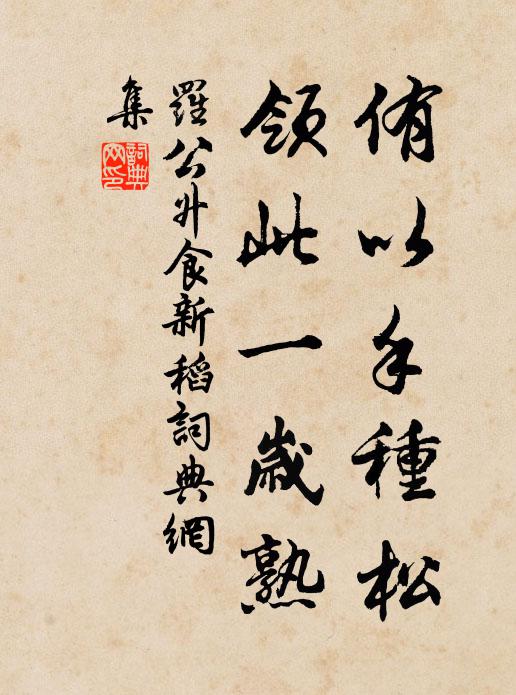 侑以手種松
領此一歲熟
羅公升食新稻詞典網
集
詞典網印